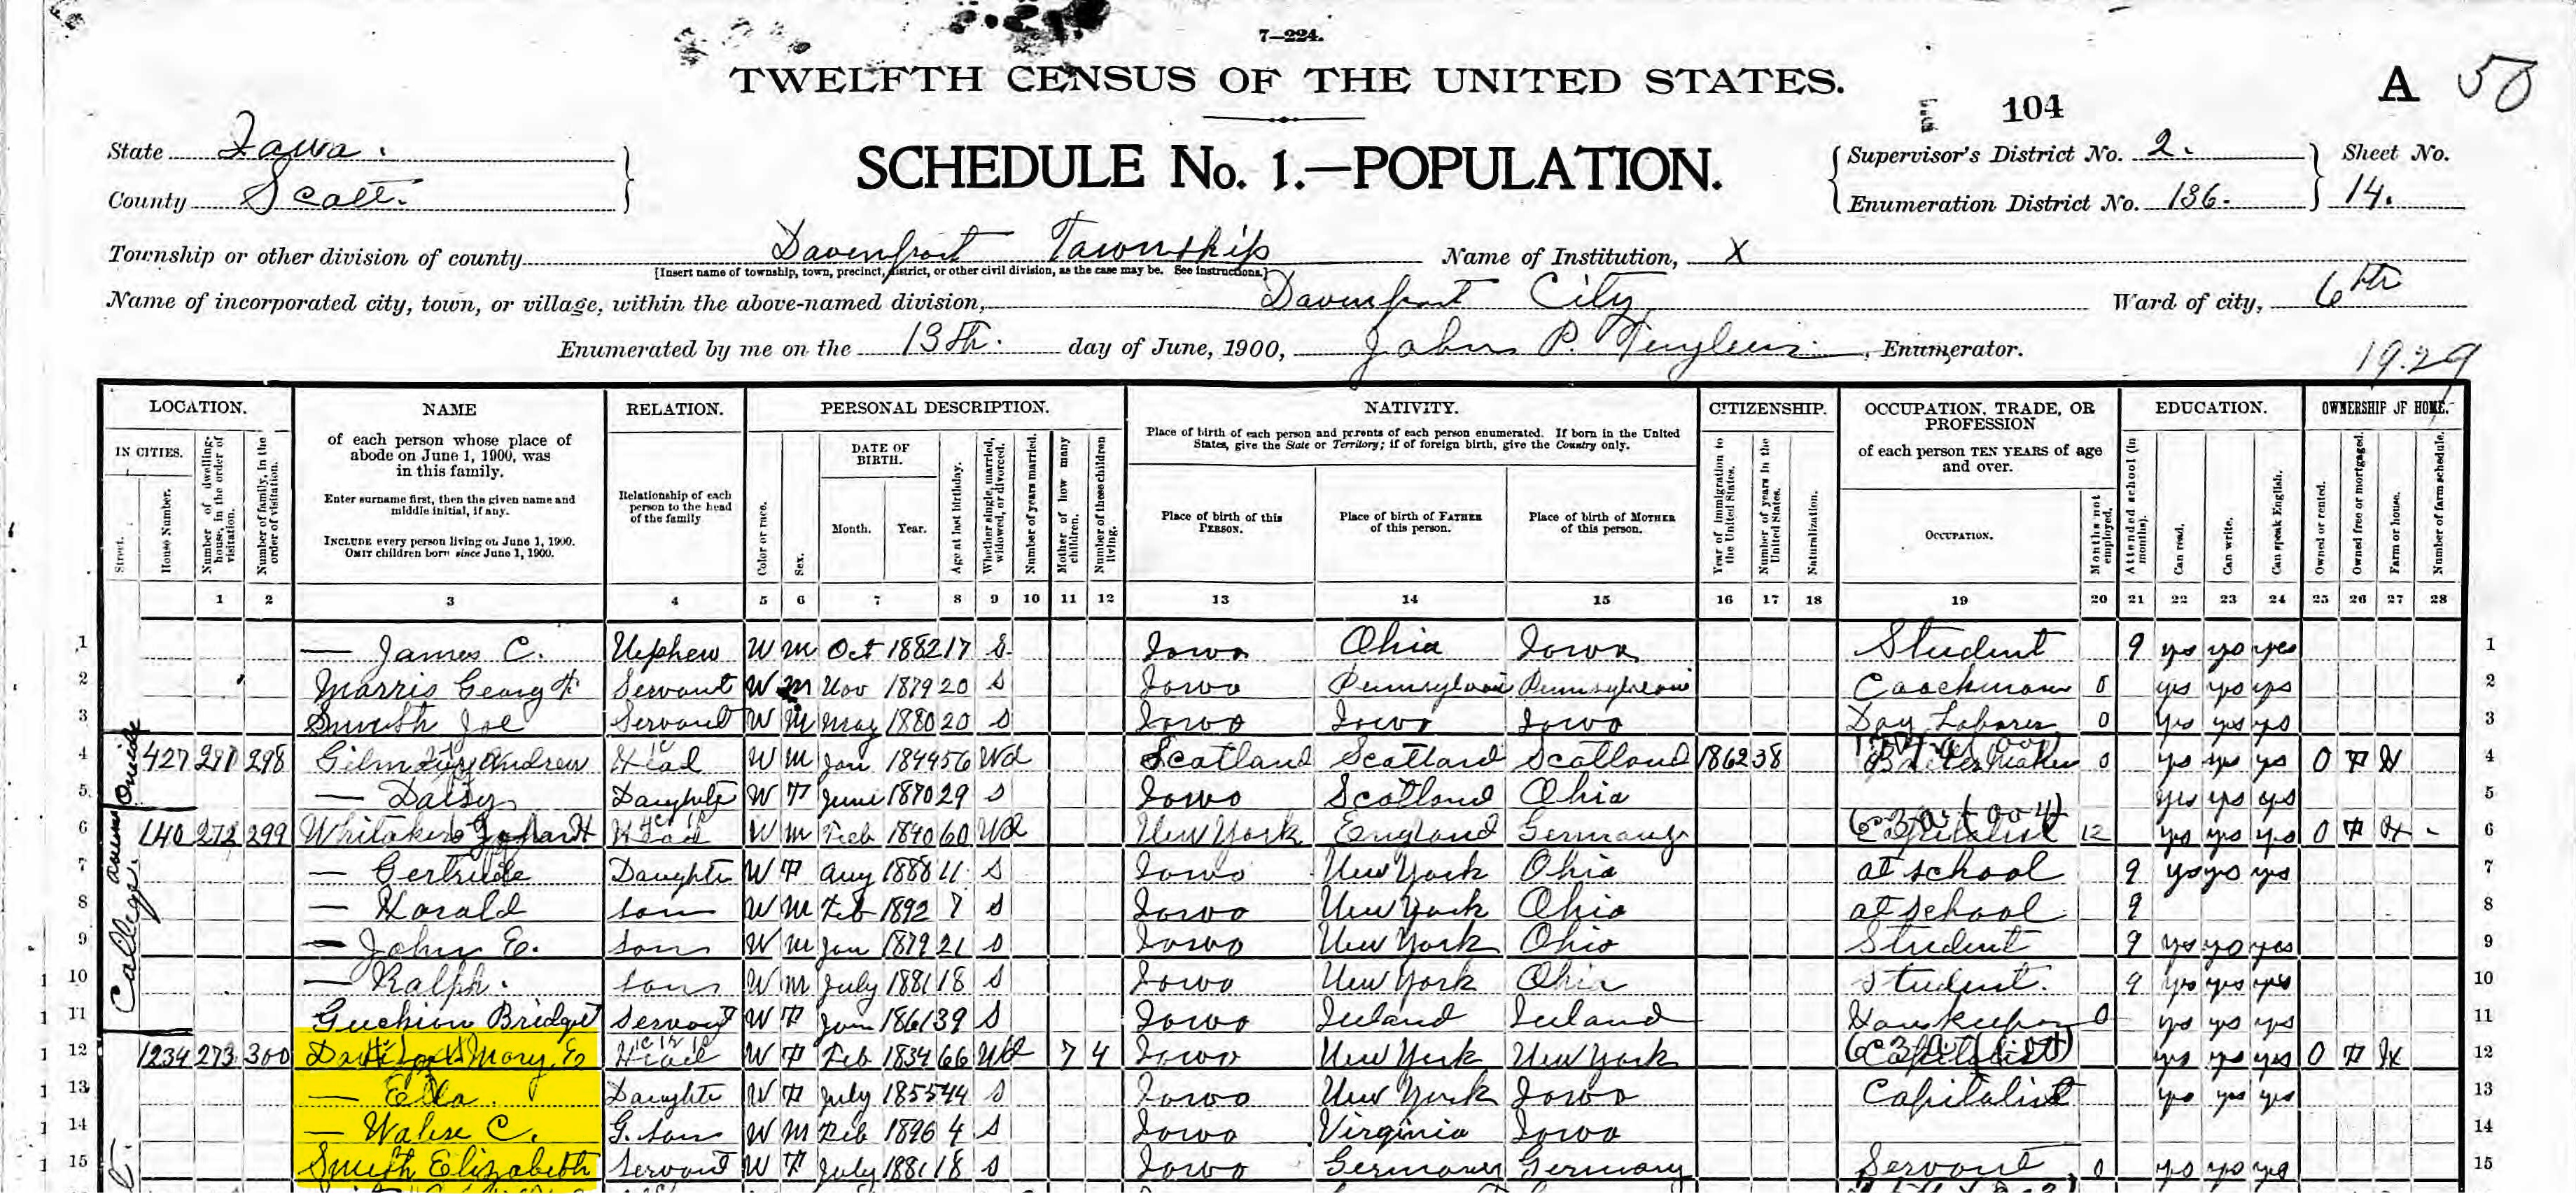 7—224.
TWELFTH CENSUS OF THE UNITED STATES.
A 50
104
State Iowa.
SCHEDULE No. 1.—POPULATION.
Supervisor's District No. 2.
Sheet No.
County Scott.
Enumeration District No. 136.
14.
Township or other division of county Davenport Township
Name of Institution, X
[Insert name of township, town, precinct, district, or other civil division, as the case may be. See instructions.]
Name of incorporated city, town, or village, within the above-named division, Davenport City
Ward of city, 6th
Enumerated by me on the 13th. day of June, 1900, John P. , Enumerator.
19.29
LOCATION. NAME RELATION. PERSONAL DESCRIPTION. NATIVITY. CITIZENSHIP. OCCUPATION, TRADE, OR PROFESSION EDUCATION. OWNERSHIP OF HOME.
IN CITIES.
Street.
House Number.
Number of dwelling-house, in the order of visitation.
Number of family, in the order of visitation.
of each person whose place of abode on June 1, 1900, was in this family.
Enter surname first, then the given name and middle initial, if any.
INCLUDE every person living on June 1, 1900.
OMIT children born since June 1, 1900.
Relationship of each person to the head of the family
Color or race.
Sex.
DATE OF BIRTH.
Month. Year.
Age at last birthday.
Whether single, married, widowed, or divorced.
Number of years married.
Mother of how many children.
Number of these children living.
Place of birth of each person and parents of each person enumerated. If born in the United States, give the State or Territory; if of foreign birth, give the Country only.
Place of birth of this PERSON.
Place of birth of FATHER of this person.
Place of birth of MOTHER of this person.
Year of immigration to the United States.
Number of years in the United States.
Naturalization.
of each person TEN YEARS of age and over.
OCCUPATION.
Months not employed.
Attended school (in months).
Can read.
Can write.
Can speak English.
Owned or rented.
Owned free or mortgaged.
Farm or house.
Number of farm schedule.
1 2 3 4 5 6 7 8 9 10 11 12 13 14 15 16 17 18 19 20 21 22 23 24 25 26 27 28
1 — James C. Nephew W M Oct 1882 17 S Iowa Ohio Iowa Student 9 yes yes yes 1
2 Morris Servant W M Nov 1879 20 S Iowa Pennsylvania Pennsylvania Coachman 0 yes yes yes 2
3 Smith Joe Servant W M May 1880 20 S Iowa Iowa Iowa Day Laborer 0 yes yes yes 3
4 427 271 298 Andrew Head W M Jan 1844 56 Wd Scotland Scotland Scotland 1862 38 0 yes yes yes O F H 4
5 — Daisy Daughter W F June 1870 29 S Iowa Scotland Ohio yes yes yes 5
6 140 272 299 Head W M Feb 1840 60 Wd New York England Germany Capitalist 12 yes yes yes O F H - 6
7 — Gertrude Daughter W F Aug 1888 11 S Iowa New York Ohio at school 9 yes yes yes 7
8 — Harald son W M Feb 1892 7 S Iowa New York Ohio at school 9 8
9 — John E. son W M Jan 1879 21 S Iowa New York Ohio Student 9 yes yes yes 9
10 — Ralph. son W M July 1881 18 S Iowa New York Ohio Student. 9 yes yes yes 10
11 Bridget Servant W F Jan 1861 39 S Iowa Ireland Ireland Housekeeper 0 yes yes yes 11
12 1234 273 300 Mary E Head W F Feb 1834 66 Wd 7 4 Iowa New York New York Capitalist yes yes yes O F H 12
13 — Ella. Daughter W F July 1855 44 S Iowa New York Iowa Capitalist yes yes yes 13
14 — C. G. Son W M Feb 1896 4 S Iowa Virginia Iowa 14
15 Smith Elizabeth Servant W F July 1881 18 S Iowa Germany Germany Servant 0 yes yes yes 15
College